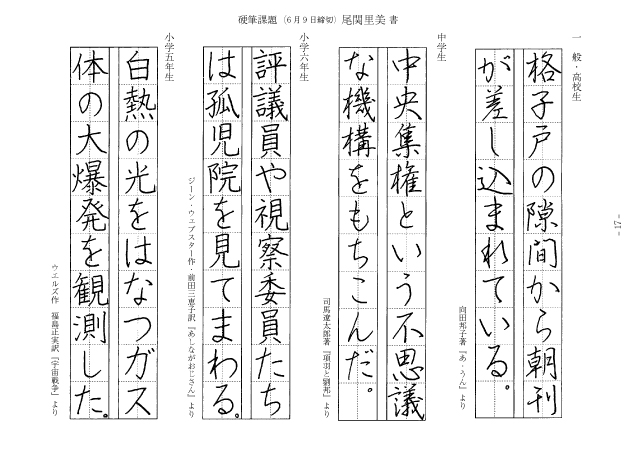 硬筆課題（６月９日締切）尾関里美 書
一般・高校生
格子戸の隙間から朝刊
が差し込まれている。
向田邦子著『あ・うん』より
中学生
中央集権という不思議
な機構をもちこんだ。
司馬遼太郎著『項羽と劉邦』より
小学六年生
評議員や視察委員たち
は孤児院を見てまわる。
ジーン・ウェブスター作・前田三恵子訳『あしながおじさん』より
小学五年生
白熱の光をはなつガス
体の大爆発を観測した。
ウエルズ作　福島正実訳『宇宙戦争』より
- 17 -